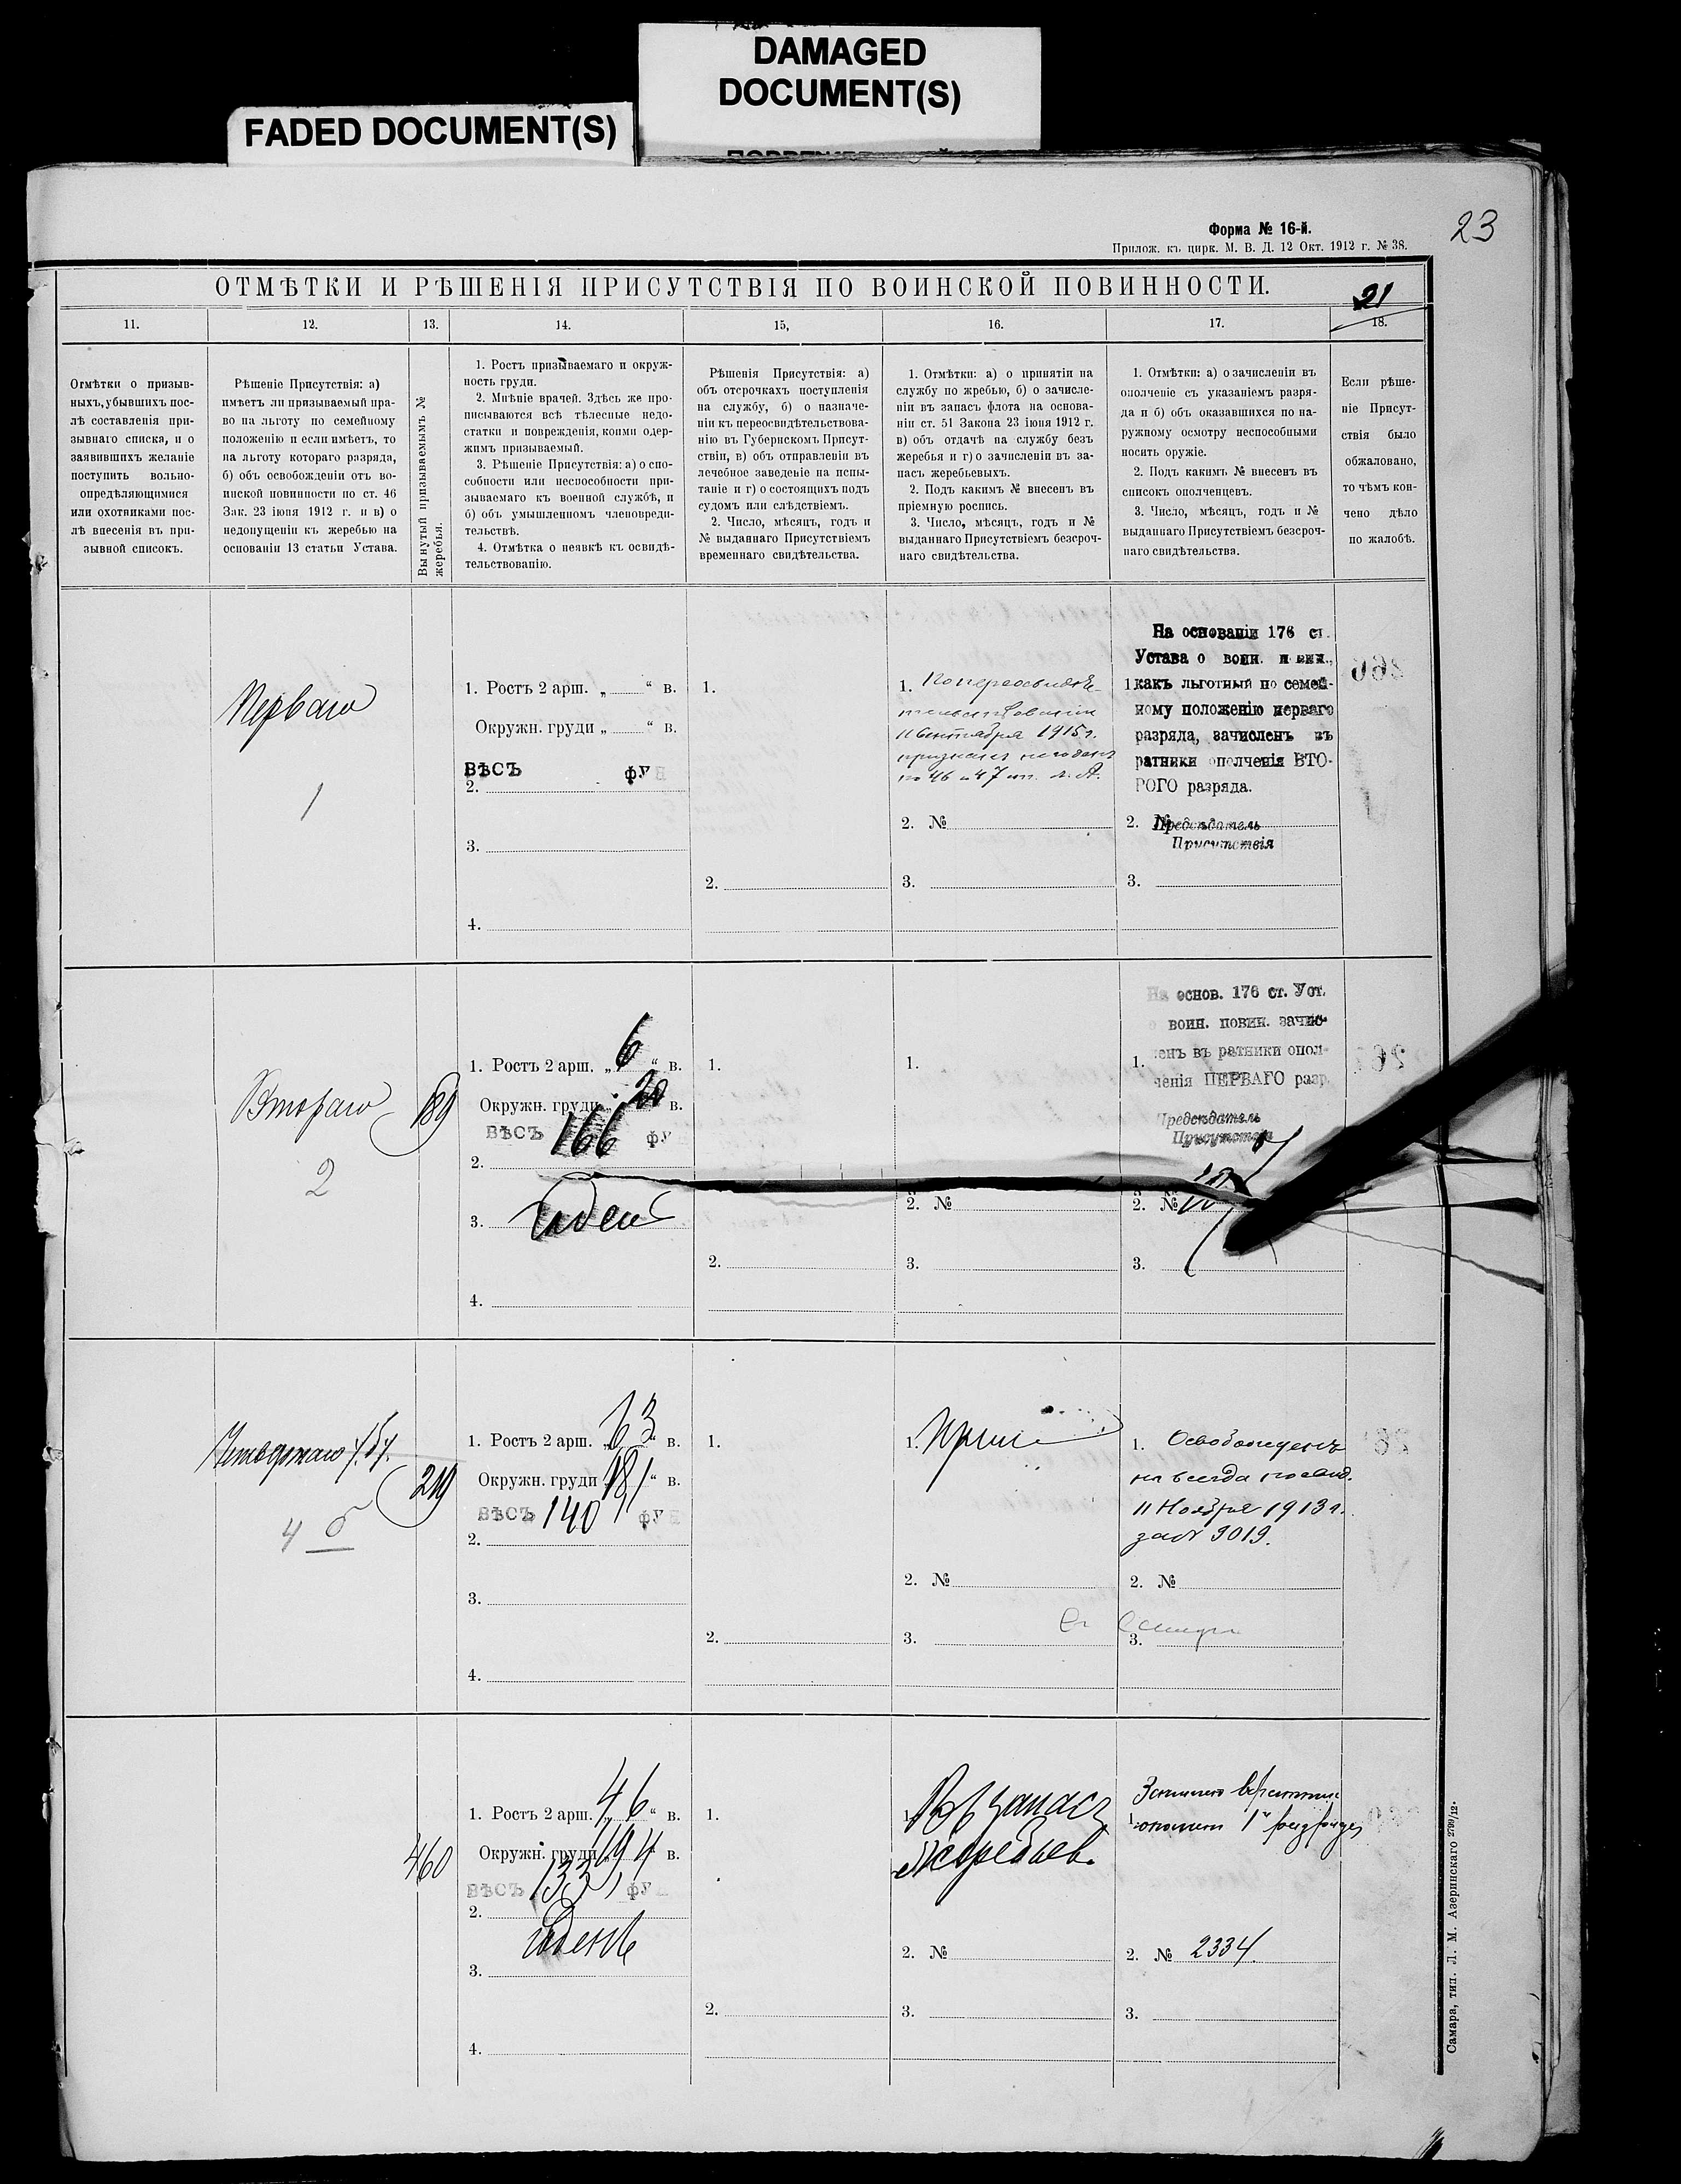 DAMAGED
DOCUMENT(S)
FADED DOCUMENT(S)
23
Форма № 16-й.
Прилож. къ цирк. М. В. Д. 12 Окт. 1912 г. № 38.
ОТМѢТКИ И РѢШЕНІЯ ПРИСУТСТВІЯ ПО ВОИНСКОЙ ПОВИННОСТИ.
21
11.
12.
13.
14.
15,
16.
17.
18.
Отмѣтки о призыв-
ныхъ, убывшихъ пос-
лѣ составленія при-
зывнаго списка, и о
заявившихъ желаніе
поступить вольно-
опредѣляющимися
или охотниками пос-
лѣ внесенія въ при-
зывной списокъ.
Рѣшеніе Присутствія: а)
имѣетъ ли призываемый пра-
во на льготу по семейному
положенію и если имѣетъ, то
на льготу котораго разряда,
б) объ освобожденіи отъ во-
инской повинности по ст. 46
Зак. 23 іюня 1912 г. и в) о
недопущеніи къ жеребью на
основаніи 13 статьи Устава.
Вынутый призываемымъ №
жеребья.
1. Ростъ призываемаго и окруж-
ность груди.
2. Мнѣніе врачей. Здѣсь же про-
писываются всѣ тѣлесные недо-
статки и поврежденія, коими одер-
жимъ призываемый.
3. Рѣшеніе Присутствія: а) о спо-
собности или неспособности при-
зываемаго къ военной службѣ, и
б) объ умышленномъ членовреди-
тельствѣ.
4. Отмѣтка о неявкѣ къ освидѣ-
тельствованію.
Рѣшенія Присутствія: а)
объ отсрочкахъ поступленія
на службу, б) о назначе-
ніи къ переосвидѣтельствова-
нію въ Губернскомъ Присут-
ствіи, в) объ отправленіи въ
лечебное заведеніе на испы-
таніе и г) о состоящихъ подъ
судомъ или слѣдствіемъ.
2. Число, мѣсяцъ, годъ и
№ выданнаго Присутствіемъ
временнаго свидѣтельства.
1. Отмѣтки: а) о принятіи на
службу по жребью, б) о зачисле-
ніи въ запасъ флота на основа-
ніи ст. 51 Закона 23 іюня 1912 г.
в) объ отдачѣ на службу безъ
жеребья и г) о зачисленіи въ за-
пасъ жеребьевыхъ.
2. Подъ какимъ № внесенъ въ
пріемную роспись.
3. Число, мѣсяцъ, годъ и №
выданнаго Присутствіемъ безсроч-
наго свидѣтельства.
1. Отмѣтки: а) о зачисленіи въ
ополченіе съ указаніемъ разря-
да и б) объ оказавшихся по на-
ружному осмотру неспособными
носить оружіе.
2. Подъ какимъ № внесенъ въ
списокъ ополченцевъ.
3. Число, мѣсяцъ, годъ и №
выданнаго Присутствіемъ безсроч-
наго свидѣтельства.
Если рѣше-
ніе Присут-
ствія было
обжаловано,
то чѣмъ кон-
чено дѣло
по жалобѣ.
Перваго
1
1. Ростъ 2 арш. „ “ в.
Окружн. груди „ “ в.
ВѢСЪ ФУ
2.
3.
4.
1.
2.
1. По переосвидѣ-
тельствованіи
11 Сентября 1915 г.
признанъ негоденъ
по 46 и 47 ст. л. А.
2. №
3.
На основаніи 176 ст.
Устава о воин. пов.,
1. какъ льготный по семей-
ному положенію перваго
разряда, зачисленъ въ
ратники ополченія ВТО-
РОГО разряда.
2. №
Предсѣдатель
Присутствія
3.
Втораго
2
189
1. Ростъ 2 арш. „ 6 “ в.
Окружн. груди 20 в.
ВѢСЪ 166 ФУ
2.
3. Годенъ
4.
1.
2.
1.
2. №
3.
На основ. 176 ст. Уст.
о воин. повин. зачис-
1. ленъ въ ратники опол-
ченія ПЕРВАГО разр.
Предсѣдатель
Присутствія
2. №
3.
Четвертаго
4 б
219
1. Ростъ 2 арш. „ 6 3 “ в.
Окружн. груди 18 1 “ в.
ВѢСЪ 140 ФУ
2.
3.
4.
1.
2.
1.
2. №
3.
1. Освобожденъ
на всегда по свид.
11 Ноября 1913 г.
за № 3019.
2. №
3.
460
1. Ростъ 2 арш. „ 4 6 “ в.
Окружн. груди 19 4 в.
ВѢСЪ 133 ФУ
2.
годенъ
3.
4.
1.
2.
1. Въ запасъ
Жеребьев.
2. №
3.
1.
2. № 2334.
3.
Самара, тип. Л. М. Азеринскаго 2799/12.